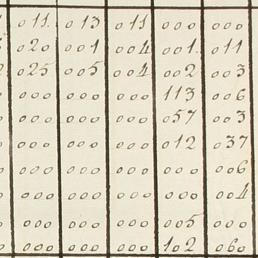 011 013 011 000 000
020 001 004 001 011
025 005 004 002 003
000 000 000 113 006
000 000 000 057 003
000 000 000 012 037
000 000 000 000 006
000 000 000 000 004
000 000 000 005 000
000 000 000 102 060